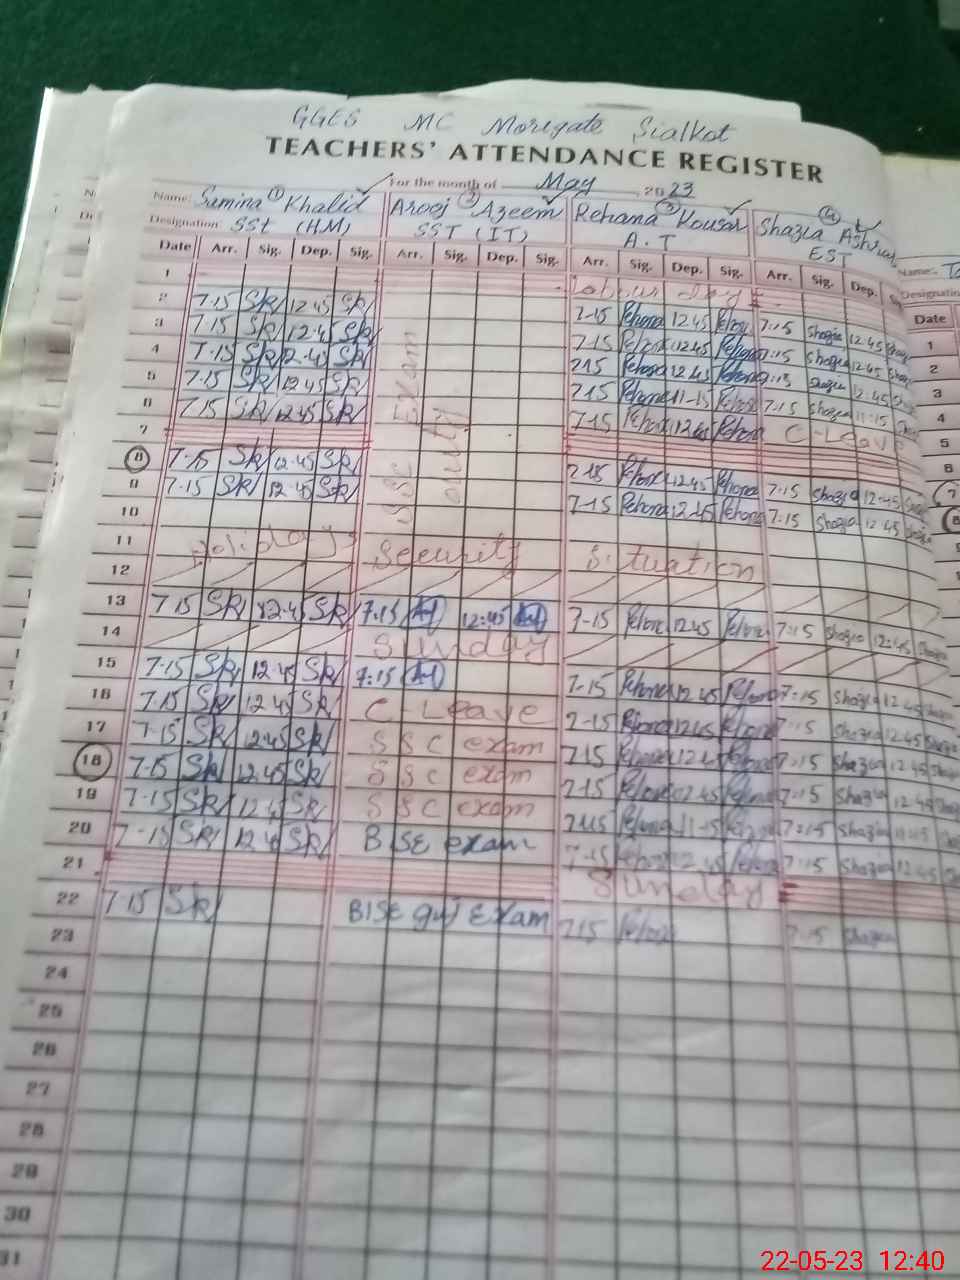 GGES MC Moregate Sialkot
TEACHERS' ATTENDANCE REGISTER
For the month of May, 2023
Name: Samina ① Khalid Arooj ② Azeem Rehana ③ Kousar Shazia ④ Ashraf
Designation SSt (HM) SST (IT) A.T EST
Date Arr. Sig. Dep. Sig. Arr. Sig. Dep. Sig. Arr. Sig. Dep. Sig. Arr. Sig. Dep.
1 Labour day
2 7-15 SK 12 45 SK 7-15 Rehana 12 45 7:15 Shazia 12:45
3 7-15 SK 12:45 SK 7-15 Rehana 12:45 Rehana 7:15 Shazia 12:45
4 7-15 SK 12-45 SK 7 15 Rehana 12 45 Rehana 7:15 Shazia 12:45
5 7-15 SK 12 45 SK 7 15 Rehana 11-15 7:15 Shazia 11:15
6 7-15 SK 12 45 SK 7-15 Rehana 12 45 Rehana C-Leave
7
SSC Exam duty
8 7-15 SK 12-45 SK 7-15 Rehana 12 45 Rehana 7:15 Shazia 12:45
9 7-15 SK 12-45 SK 7-15 Rehana 12-45 Rehana 7:15 Shazia 12:45
10
11 Holidays Security Situation
12
13 7 15 SK 12-45 SK 7:15 12:45 7-15 Rehana 12 45 Rehana 7:15 Shazia 12:45
14 Sunday
15 7-15 SK 12 45 SK 7:15 7-15 Rehana 12 45 Rehana 7:15 Shazia 12 45
16 7-15 SK 12 45 SK C-Leave 7-15 Rehana 12 45 7:15 Shazia 12:45
17 7-15 SK 12 45 SK SSC exam 7-15 Rehana 12 45 7:15 Shazia 12:45
18 7-15 SK 12:45 SK SSC exam 7-15 Rehana 12 45 7:15 Shazia 12:45
19 7-15 SK 12 45 SK SSC exam 7-15 Rehana 11-15 7:15 Shazia 11:15
20 7-15 SK 12 45 SK BISE exam 7-15 Rehana 12 45 Rehana 7:15 Shazia 12:45
21 Sunday
22 7-15 SK BISE guj Exam 7 15 7:15 Shazia
23
24
25
26
27
28
29
30
31
Name:
Designation
Date
1
2
3
4
5
6
7
8
22-05-23 12:40